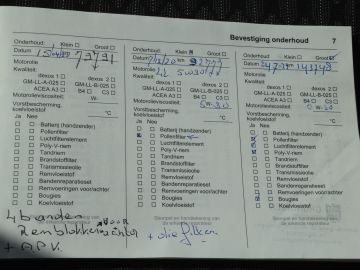 Bevestiging onderhoud 7
Onderhoud: Klein Groot
Datum km 79791
Motorolie
Kwaliteit:
dexos 1 dexos 2
GM-LL-A-025 GM-LL-B-025
ACEA A3 B4 C3
Motorolieviscositeit: W-
Vorstbescherming,
koelvloeistof °C
Ja Nee
Batterij (handzender)
Pollenfilter
Luchtfilterelement
Poly-V-riem
Tandriem
Brandstoffilter
Transmissieolie
Remvloeistof
Bandenreparatieset
Remvoeringen voor/achter
Bougies
4 banden
Remblokken
+ APK.
Onderhoud: Klein Groot
Datum km
Motorolie
Kwaliteit: 5W30
dexos 1 dexos 2
GM-LL-A-025 GM-LL-B-025
ACEA A3 B4 C3
Motorolieviscositeit: 5W-30
Vorstbescherming,
koelvloeistof °C
Ja Nee
Batterij (handzender)
Pollenfilter
Luchtfilterelement
Poly-V-riem
Tandriem
Brandstoffilter
Transmissieolie
Remvloeistof
Bandenreparatieset
Remvoeringen voor/achter
Bougies
Stempel en handtekening van
+ oliefilter
Onderhoud: Klein Groot
Datum km 143148
Motorolie
Kwaliteit:
dexos 1 dexos 2
GM-LL-A-025 GM-LL-B-025
ACEA A3 B4 C3
Motorolieviscositeit:
Vorstbescherming,
koelvloeistof °C
Ja Nee
Batterij (handzender)
Pollenfilter
Luchtfilterelement
Poly-V-riem
Tandriem
Brandstoffilter
Transmissieolie
Remvloeistof
Bandenreparatieset
Remvoeringen voor/achter
Bougies
Stempel en handtekening van